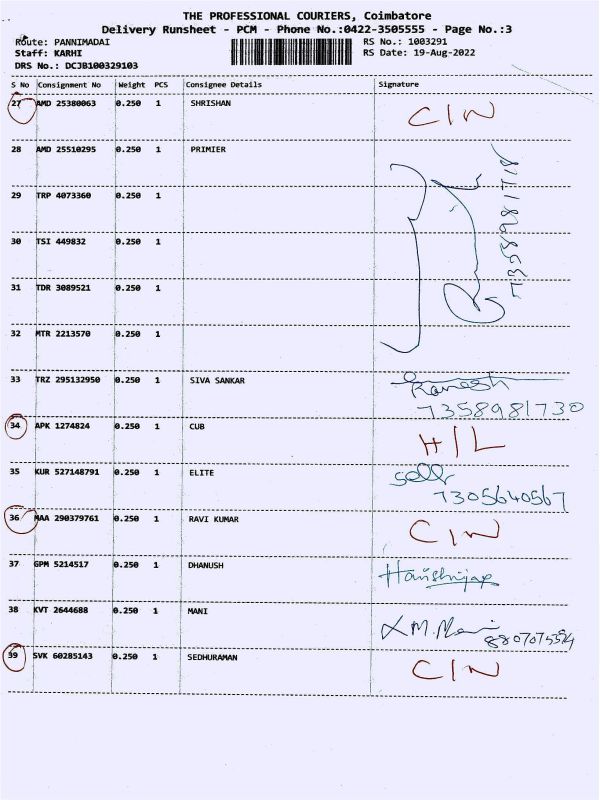 THE PROFESSIONAL COURIERS, Coimbatore
Delivery Runsheet - PCM - Phone No.:0422-3505555 - Page No.:3
Route: PANNIMADAI RS No.: 1003291
Staff: KARHI RS Date: 19-Aug-2022
DRS No.: DCJB100329103
S No Consignment No Weight PCS Consignee Details Signature
27 AMD 25380063 0.250 1 SHRISHAN CIN
28 AMD 25510295 0.250 1 PRIMIER
29 TRP 4073360 0.250 1
30 TSI 449832 0.250 1
31 TDR 3089521 0.250 1
32 MTR 2213570 0.250 1
7358981718
33 TRZ 295132950 0.250 1 SIVA SANKAR Ramesh
7358981730
34 APK 1274824 0.250 1 CUB H/L
35 KUR 527148791 0.250 1 ELITE
7305640567
36 MAA 290379761 0.250 1 RAVI KUMAR CIN
37 GPM 5214517 0.250 1 DHANUSH
38 KVT 2644688 0.250 1 MANI
39 SVK 60285143 0.250 1 SEDHURAMAN CIN